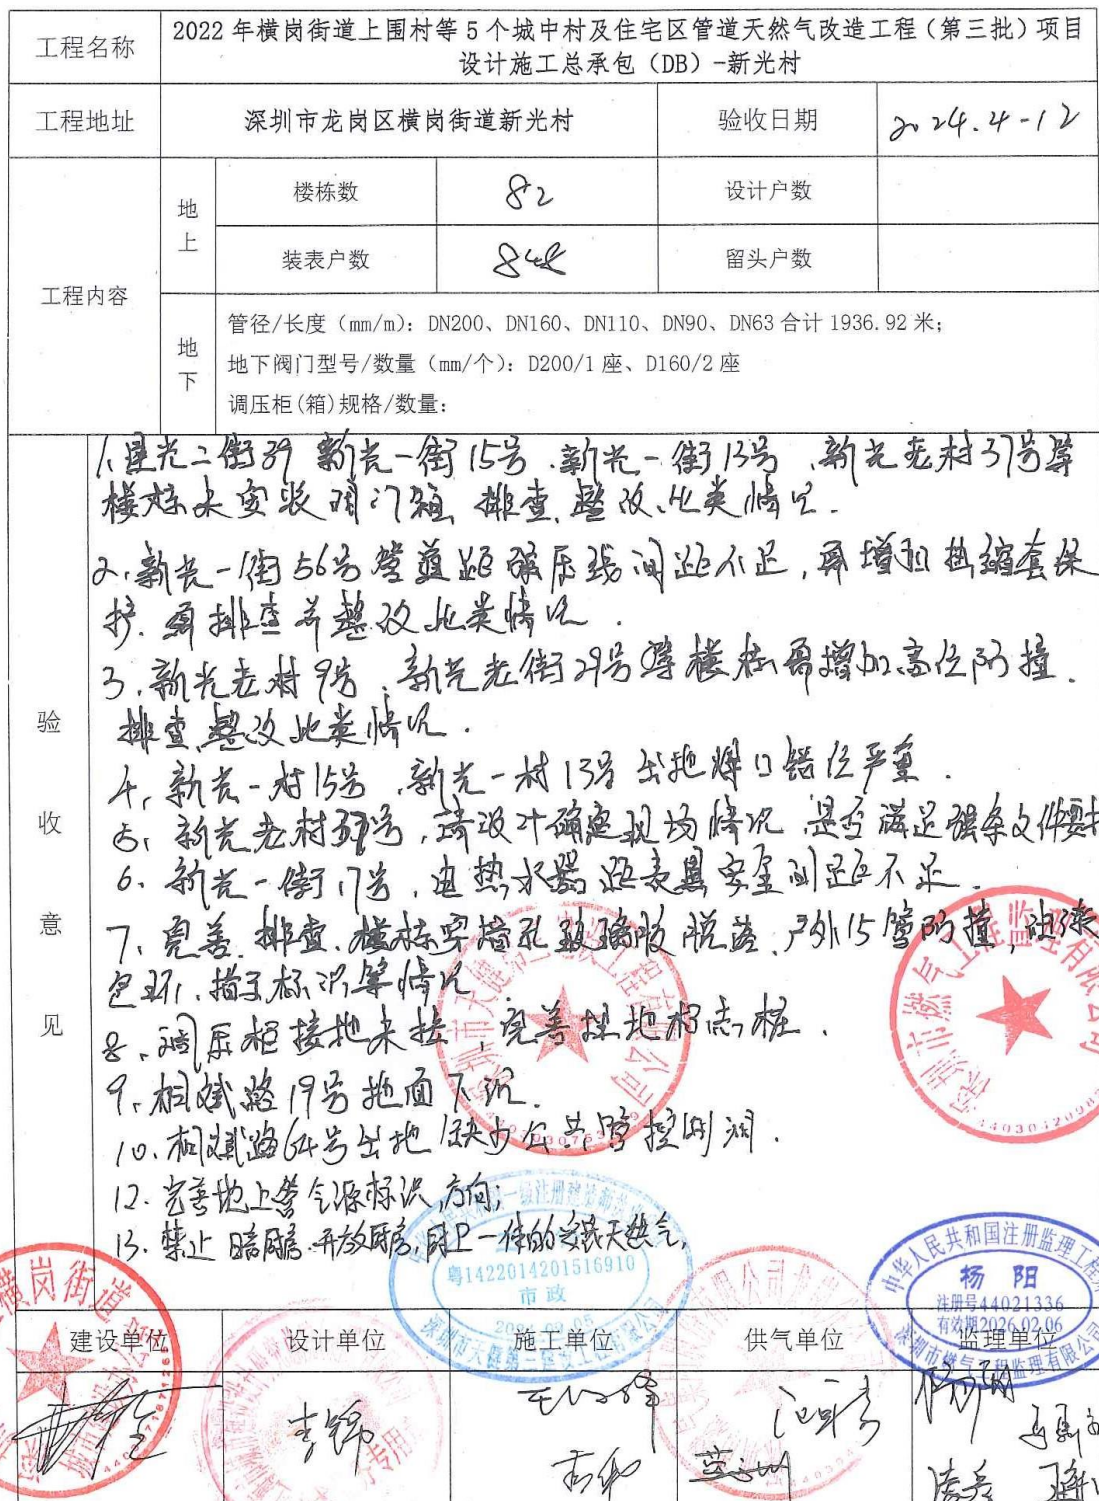 工程名称
2022年横岗街道上围村等5个城中村及住宅区管道天然气改造工程（第三批）项目
设计施工总承包（DB）-新光村
工程地址
深圳市龙岗区横岗街道新光村
验收日期
2024.4-12
工程内容
地上
楼栋数
82
设计户数
装表户数
848
留头户数
地下
管径/长度（mm/m）：DN200、DN160、DN110、DN90、DN63合计1936.92米；
地下阀门型号/数量（mm/个）：D200/1座、D160/2座
调压柜(箱)规格/数量：
验收意见
1、二街39 新光一街15号、新光一街13号、新光老村37号等
楼栋未安装阀门箱，排查、整改此类情况．
2、新光一街56号管道距低压线间距不足，需增加热缩套保
护．需排查并整改此类情况．
3、新光老村9号、新光老街29号等楼栋需增加高位防撞．
排查、整改此类情况．
4、新光一村15号、新光一村13号出地焊口错位严重．
5、新光老村号，请设计确定现场情况，是否满足强条文件要求
6、新光一街17号，电热水器距表具安全间距不足．
7、完善、排查、楼栋穿墙孔玻璃胶脱落、户外15管防撞，
包环、指示标识等情况
8、调压柜接地未接，完善埋地标志桩．
9、相斌路19号地面下沉．
10、相斌路64号出地缺少公共管控制阀．
12．完善地上管气源标识，方向；
13．禁止暗厨房、开放厨房，厨卫一体的安装天然气，
建设单位
设计单位
施工单位
供气单位
监理单位
横岗街道
粤1422014201516910
市政
中华人民共和国注册监理工程师
杨阳
注册号44021336
有效期2026.02.06
深圳市燃气工程监理有限公司
深圳市燃气工程监理有限公司
李锦